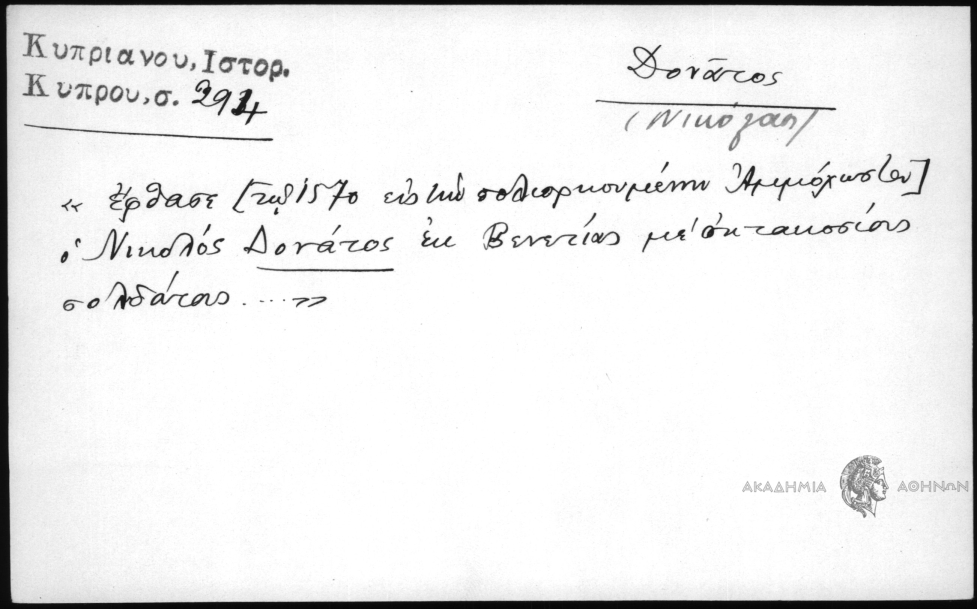 Κυπριανου, Ιστορ.
Κυπρου, σ. 291
Δονᾶτος
(Νικόλαος)
« Ἔφθασε [τῷ 1570 εἰς τὴν πολιορκουμένην Ἀμμόχωστον]
ὁ Νικολός Δονάτος ἐκ Βενετίας μέ ὀκτακοσίους
σολδάτους .... »
ΑΚΑΔΗΜΙΑ ΑΘΗΝΩΝ